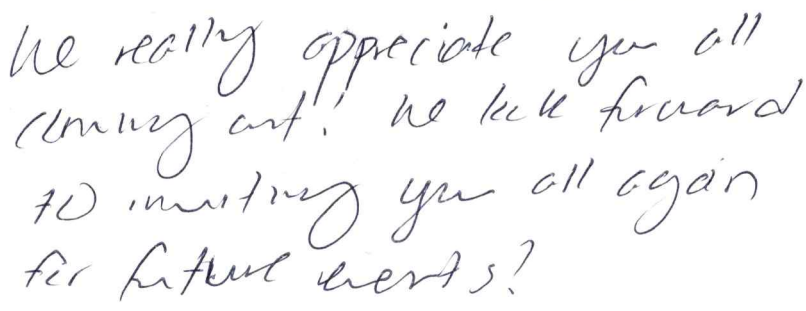 We really appreciate you all
coming out! We look forward
to inviting you all again
for future events!